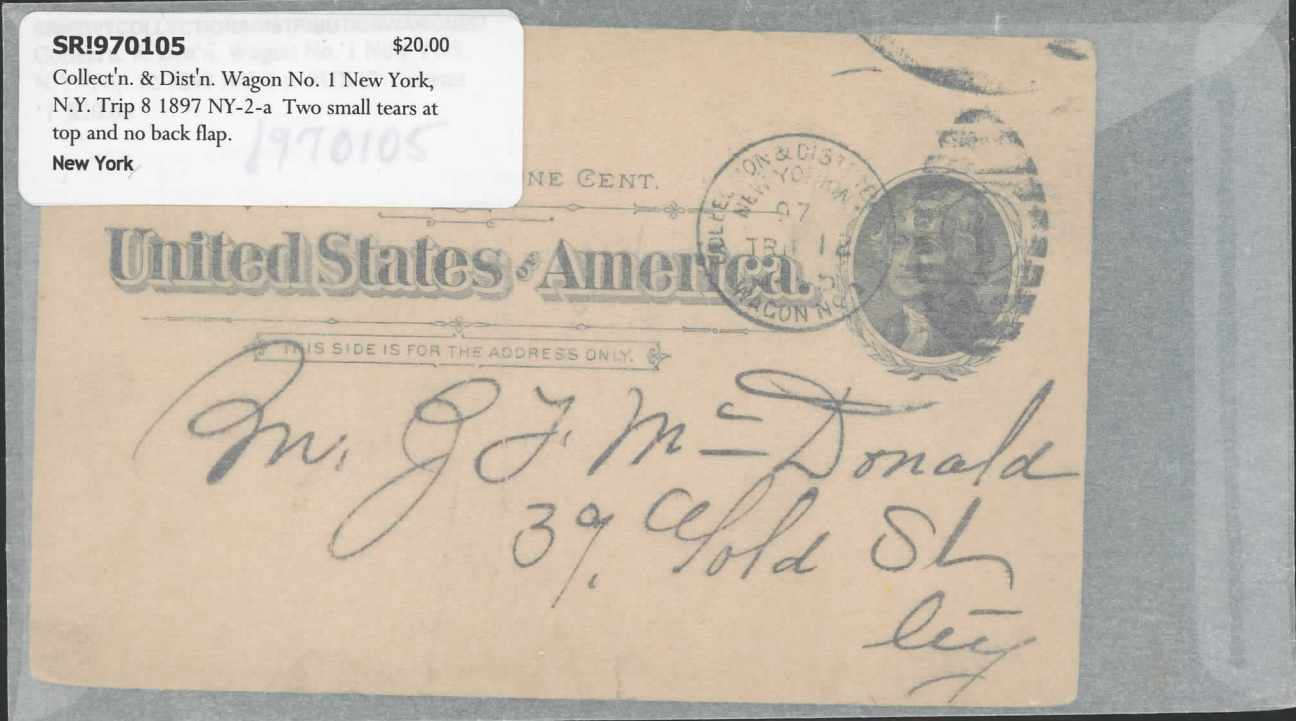 SR!970105 $20.00
Collect'n. & Dist'n. Wagon No. 1 New York,
N.Y. Trip 8 1897 NY-2-a Two small tears at
top and no back flap.
New York
1970105
NE CENT.
COLLECTION & DISTRIB
NEW YORK N.Y.
97
TRIP
WAGON NO. 1
United States OF America.
THIS SIDE IS FOR THE ADDRESS ONLY.
Mr. J. F. McDonald
39 Gold St
City